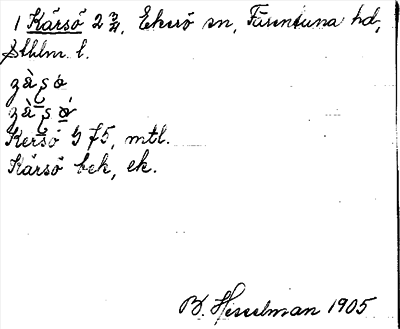 1 Kärsö 2 3/4, Ekerö sn, Färentuna hd,
Sthlm l.
Kersö G 75, mtl.
Kärsö bek, ek.
B. Hesselman 1905